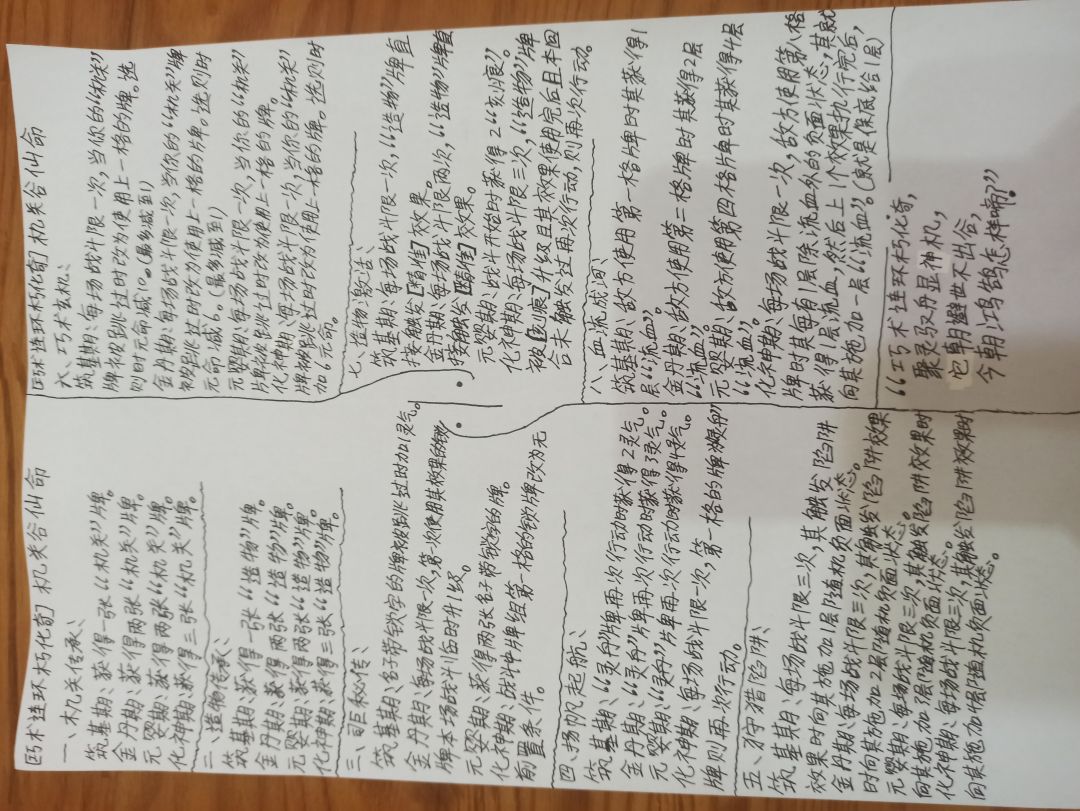 [巧术连环朽化奇] 机关谷仙命
一、机关传承:
筑基期:获得一张“机关”牌。
金丹期:获得两张“机关”牌。
元婴期:获得两张“机关”牌。
化神期:获得三张“机关”牌。
二、造物传承:
筑基期:获得一张“造物”牌。
金丹期:获得两张“造物”牌。
元婴期:获得两张“造物”牌。
化神期:获得三张“造物”牌。
三、司匠秘传:
筑基期:名子带锁字的牌被跳过时加1灵气。
金丹期:每场战斗限一次,第一次使用其效果的锁
牌本场战斗临时升1级。
元婴期:获得两张名子带锁字的牌。
化神期:战斗中牌组第一格的锁牌改为无
前置条件。
四、扬帆起航:
筑基期:“灵舟”牌再次行动时获得2灵气。
金丹期:“灵舟”牌再次行动时获得3灵气。
元婴期:“灵舟”牌再次行动时获得4灵气。
化神期:每场战斗限一次,第一格的牌为“灵舟”
牌则再次行动。
五、狩猎陷阱:
筑基期:每场战斗限三次,其触发陷阱
效果时向其施加1层随机负面状态。
金丹期:每场战斗限三次,其触发陷阱效果
时向其施加2层随机负面状态。
元婴期:每场战斗限三次,其触发陷阱效果时
向其施加3层随机负面状态。
化神期:每场战斗限三次,其触发陷阱效果时
向其施加4层随机负面状态。
[巧术连环朽化奇] 机关谷仙命
六、巧术玄机:
筑基期:每场战斗限一次,当你的“机关”
牌被跳过时改为使用上一格的牌。选
则时元命减10。(最多减到1)
金丹期:每场战斗限一次,当你的“机关”牌
被跳过时改为使用上一格的牌。选则时
元命减6。(最多减到1)
元婴期:每场战斗限一次,当你的“机关”
牌被跳过时改为使用上一格的牌。
化神期:每场战斗限一次,当你的“机关”
牌被跳过时改为使用上一格的牌。选则时
加6元命。
七、造物激活:
筑基期:每场战斗限一次,“造物”牌直
接触发[精准]效果。
金丹期:每场战斗限两次,“造物”牌直
接触发[精准]效果。
元婴期:战斗开始时获得2“刻痕”。
化神期:每场战斗限三次,“造物”牌
被[刻痕]升级且其效果使用完后且本回
合未触发过再次行动,则再次行动。
八、血流成河:
筑基期:敌方使用第一格牌时其获得1
层“流血”
金丹期:敌方使用第二格牌时其获得2层
“流血”
元婴期:敌方使用第四格牌时其获得4层
“流血”
化神期:每场战斗限一次,敌方使用第八格
牌时其每有1层除流血外的负面状态,其就
获得1层流血,然后上1个效果执行完后,
向其施加一层“流血”。(就是保底给1层)
“巧术连环朽化奇,
聚灵驭丹显神机,
它朝避世不出谷,
今朝鸿鹄怎样鸣?”